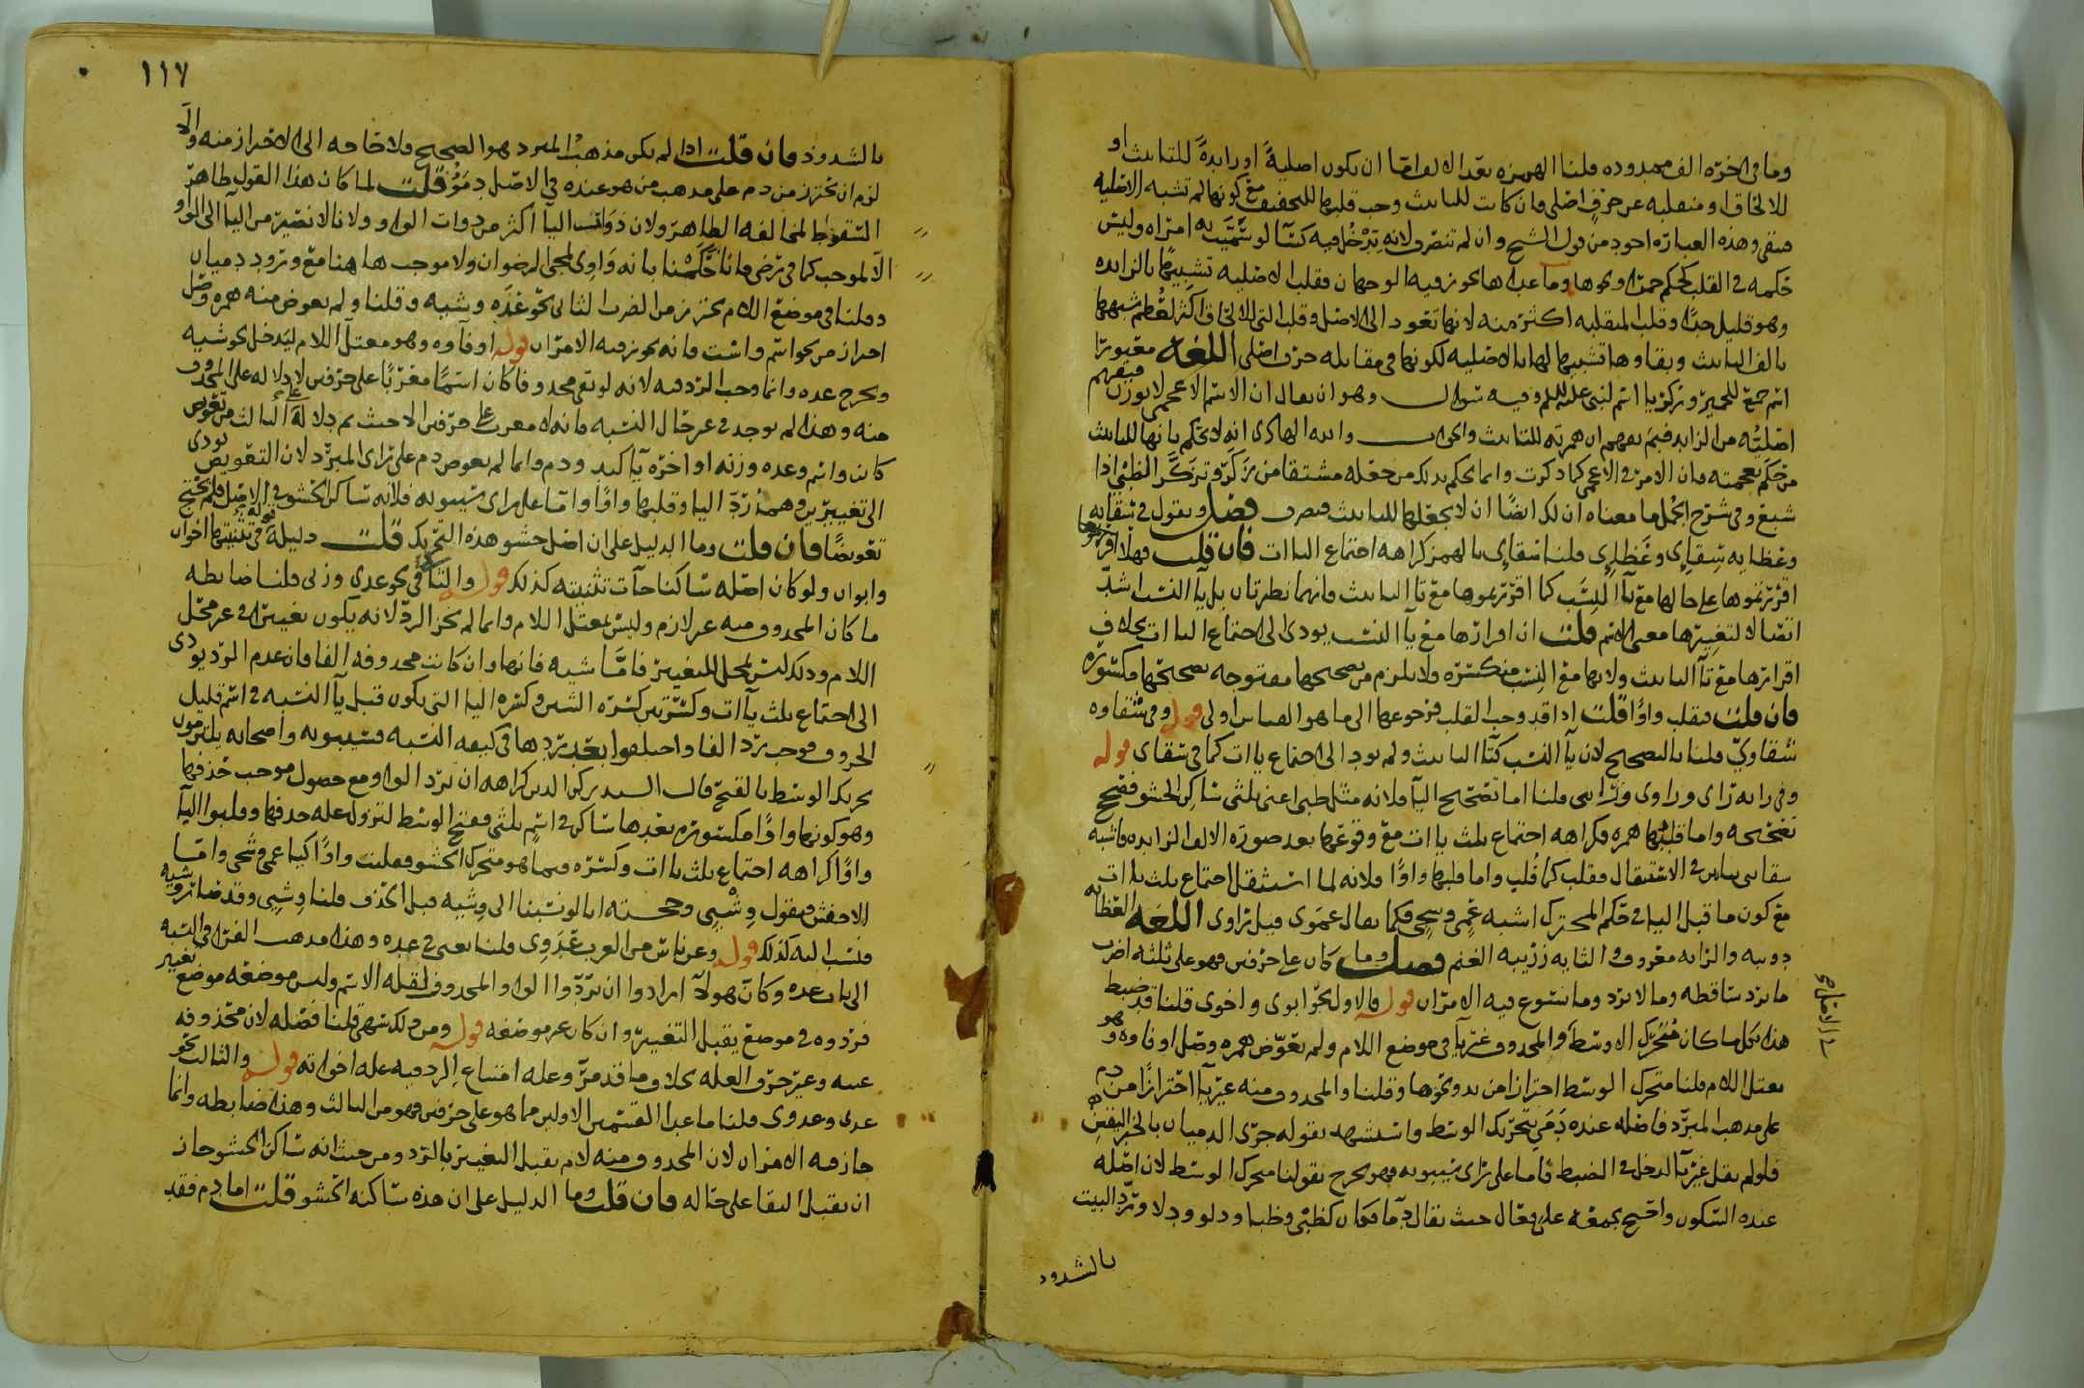 وما في اخره الف ممدوده قلنا الهمزه بعد الالف اما ان يكون اصلية او زايدة للتانيث او
للالحاق او منقلبه عن حرف اصلي فان كانت للتانيث وجب قلبها للتخفيف مع كونها لم تشبه الاصليه
وهذه العباره اجود من قول الشيخ وان لم تنصرف لانه يدخل فيه كسا لو سميت به امراه وليس
حكمه في القلب كحكم حمرا ونحوها وما عداها يجوز فيه الوجهان فقلب الاصليه تشبيها بالزايده
وهو قليل جدا وقلب المنقلبه اكثر منه لانها تعود الى الاصل وقلب التي للالحاق اكثر لعظم شبهها
بالف التانيث وبقاوها تشبيها لها بالاصليه لكونها في مقابله حرف اصلي اللغه معيورا
اسم جمع للحمير وزكريا اسم لنبي عليه السلم وفيه سوال وهو ان يقال ان الاسم الاعجمي لا يوزن
اصليه من الزايد فبم يفهم ان همزته للتانيث والجواب انه لا يحكم بانها للتانيث
من حكم بعجمته فان الامر في الاعجمي كما ذكرت وانما يحكم بذلك من جعله مشتقا من زكر وتزكر الظبي اذا
شبع وفي شرح الجمل ما معناه ان لك ايضا ان لا تجعلها للتانيث فصل وتقول في سقايه
وعظايه سقاءي وعظاءي قلنا سقاءي بالهمز كراهه اجتماع الياات فان قلت فهلا اقررتموها
اقررتموها على حالها مع يا النسب كما اقررتموها مع تا التانيث فانهما نظيرتان بل يا النسب اشد
اتصالا لتغييرها معنى الاسم قلت ان اقرارها مع يا النسب يودي الى اجتماع الياات بخلاف
اقرارها مع تا التانيث ولانها مع النسب منكسره ولا يلزم من تصحيحها مفتوحه تصحيحها مكسوره
فان قلت فقلب واوا قلت اذا قد وجب القلب فرجوعها الى ما هو القياس اولى قوله وفي شقاوه
شقاوي قلنا بالتصحيح لان يا النسب كتا التانيث ولم يود الى اجتماع ياات كما في سقاي قوله
وفي رايه راي وراوي وراءي قلنا اما تصحيح اليا فلانه مثل ظبي اعني ثلاثي ساكن الحشو فصحح
تصحيحه واما قلبها همزه فكراهه اجتماع ثلث ياات مع وقوعها بعد صوره الالف الزايده فاشبه
سقايي في الاستثقال فقلب كما قلب واما قلبها واوا فلانه لما استثقل اجتماع ثلث ياات
مع كون ما قبل اليا في حكم المحترك اشبه عمي وشجي فكما يقال عموي قيل راوي اللغه العظايه
دويبه والرايه معروفه والثايه زريبه الغنم فصل وما كان على حرفين فهو على ثلثه اضرب
ما يرد ساقطه وما لا يرد وما يسوغ فيه الامران قوله فالاول نحو ابوي واخوي قلنا قد ضبط
هذا بكل ما كان متحرك الاوسط والمحذوف غير يا في موضع اللام ولم يعوض همزه وصل او فاوه وهو
معتل اللام قلنا متحرك الوسط احترازا من يد ونحوها وقلنا والمحذوف منه غير يا احترازا من دم
على مذهب المبرد فاصله عنده دمي بتحريك الوسط واستشهد بقوله جرى الدميان بالخبر اليقين
فلو لم يقل غير يا لدخل في الضبط فاما على راي سيبويه فهو يخرج بقولنا متحرك الوسط لان اصله
عنده السكون واحتج بجمعه على فعال حيث يقال دما فكان كظبي وظبا ودلو ودلا ورد البيت
بالشذوذ
١١٧
بالشذوذ فان قلت اذا لم يكن مذهب المبرد هو الصحيح فلا حاجه الى الاحتراز منه والا
لزم ان يحترز من دم على مذهب من هو عنده في الاصل دمو قلت لما كان هذا القول ظاهر
السقوط لمخالفه الظاهر ولان ذوات اليا اكثر من ذوات الواو ولانا لا نصير من اليا الى الواو
الا لموجب كما في رضي فانا حكمنا بانه واوي لمجي الرضوان ولا موجب هاهنا مع ورود دميان
وقلنا في موضع اللام يحترز من الضرب الثاني نحو عده وشبه وقلنا ولم يعوض منه همزه وصل
احتراز من نحو اسم واست فانه يجوز فيه الامران قوله او فاوه وهو معتل اللام ليدخل نحو شيه
ويخرج عده وانما وجب الرد فيه لانه لو بقي محذوفا كان اسما معربا على حرفين لا دلاله على المحذوف
منه وهذا لم يوجد في غير حال النسبه فانه لا معرب على حرفين الا حيث ثم دلاله
كان واسم وعده وزنه او اخره يا كيد ودم وانما لم يعوض دم على راي المبرد لان التعويض يودي
الى تغييرين وهما رد اليا وقلبها واوا واما على راي سيبويه فلانه ساكن الحشو في الاصل فلم يحتج
تعويضا فان قلت وما الدليل على ان اصل حشو هذه التحريك قلت دليله قوله في تثنيتها اخوان
وابوان ولو كان اصله ساكنا جات تثنيته كذلك قوله والثاني نحو عدي وزني قلنا ضابطه
ما كان المحذوف منه غير لازم وليس بمعتل اللام وانما لم يجز الرد لانه يكون تغييرا في غير محل
اللام وذلك ليس بمحل للتغيير فاما شيه فانها وان كانت محذوفه الفا فان عدم الرد يودي
الى اجتماع ثلث ياات وكسرتين كسره الشين وكسره اليا التي يكون قبل يا النسبه في اسم قليل
الحروف فوجب رد الفا واختلفوا بعد ردها في كيفيه النسبه فسيبويه واصحابه يلتزمون
تحريك الوسط بالفتح قال السيد ركن الدين كراهه ان ترد الواو مع حصول موجب حذفها
وهو كونها واوا مكسوره بعدها ساكن في اسم ثلثي ففتح الوسط لتزول عله حذفها وقلبوا اليا
واوا كراهه اجتماع ثلث ياات وكسره فيما هو متحرك الحشو فقلبت واوا كيا عمي وشجي واما
الاخفش فيقول وشيي وحجته انا لو نسبنا الى وشيه قبل الحذف قلنا وشيي وقد صار وشيه
فنسب اليه كذلك قوله وعن ناس من العرب عدوي قلنا يعني في عده وهذا مذهب الفرا في النسبه
الى باب عده وكان هولا ارادوا ان يردوا الواو المحذوف لقله الاسم وليس موضعه موضع تغيير
فردوه في موضع يقبل التغيير وان كان غير موضعه قوله ومن ذلك سهي قلنا فصله لان محذوفه
عينه وغير حرف العله بخلاف ما قد مر وعله امتناع الرد فيه عله اخواته قوله والثالث نحو
غدي وغدوي قلنا ما عدا القسمين الاولين مما هو على حرفين فهو من الثالث وهذا ضابطه وانما
جاز فيه الامران لان المحذوف منه لام يقبل التغيير بالرد ومن حيث انه ساكن الحشو جاز
ان يقبل البقا على حاله فان قلت وما الدليل على ان هذه ساكنه الحشو قلت اما دم فقد